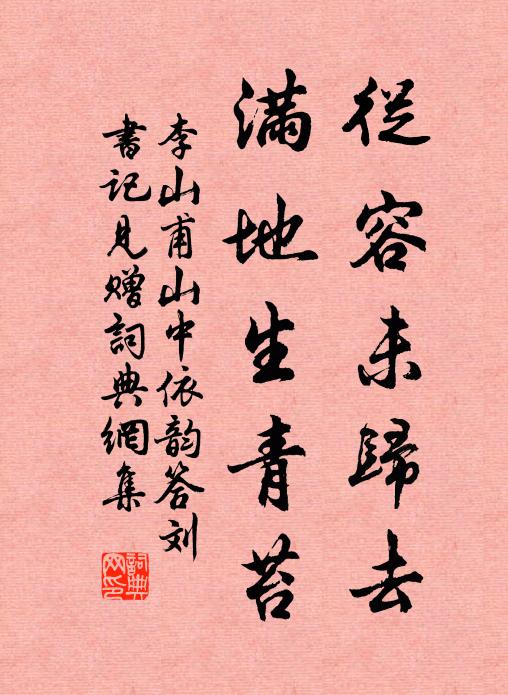 從容未歸去
滿地生青苔
李山甫山中依韵答刘
書记見贈詞典網集
詞典网印